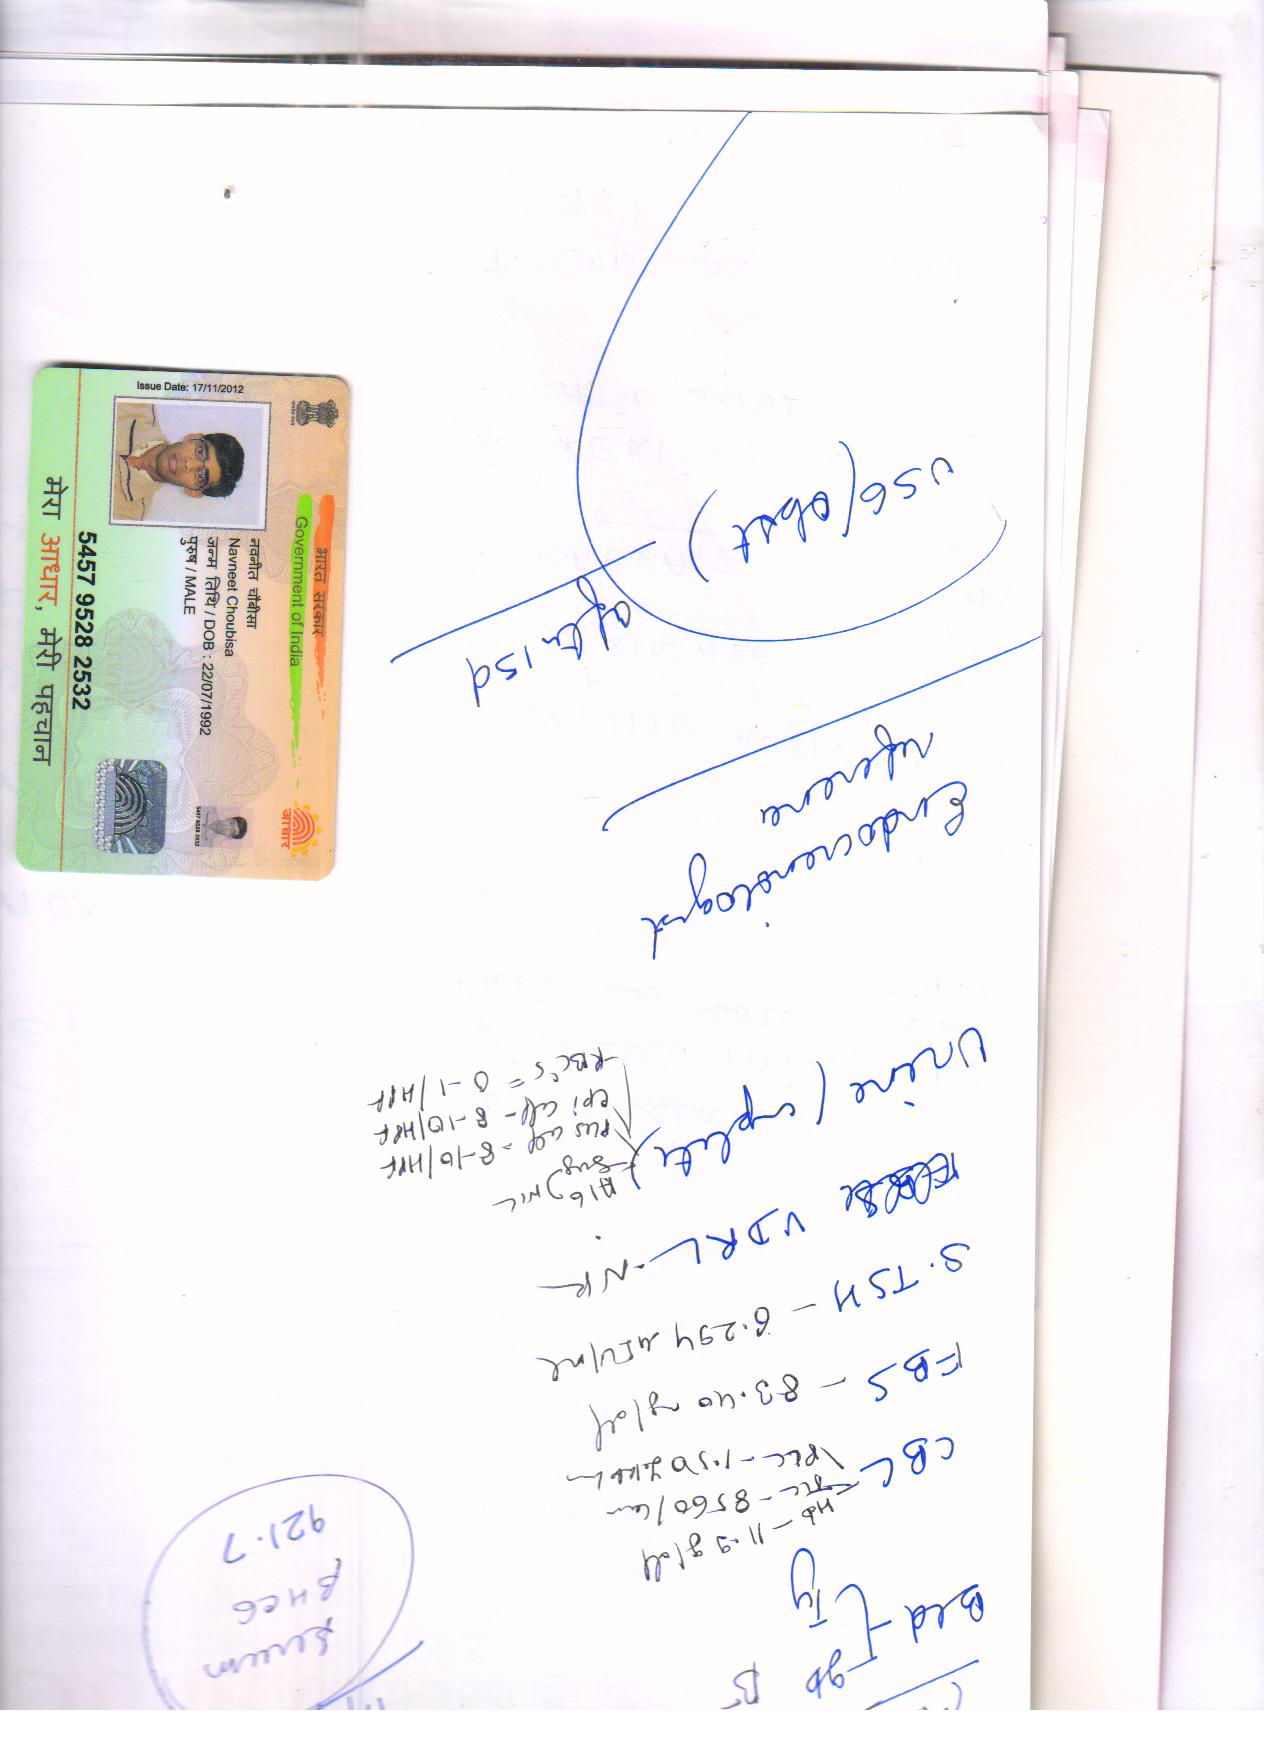 Issue Date: 17/11/2012
भारत सरकार
Government of India
नवनीत चौबीसा
Navneet Choubisa
जन्म तिथि / DOB : 22/07/1992
पुरुष / MALE
आधार
5457 9528 2532
5457 9528 2532
मेरा आधार, मेरी पहचान
Serum
BHCG
921.7
Bld
gp
B
CBC
Hb - 11.9 g/dl
TLC - 8560/
PLC - 1.50
FBS - 83.40 mg/dl
S.TSH - 6.294 uIU/ml
VDRL - NR
Urine (complete)
Alb
Sug
NIL
Pus cell = 8-10/HPF
Epi cell - 8-10/HPF
RBC's = 0-1/HPF
Endocrinologist
reference
USG (obst)
after 15d